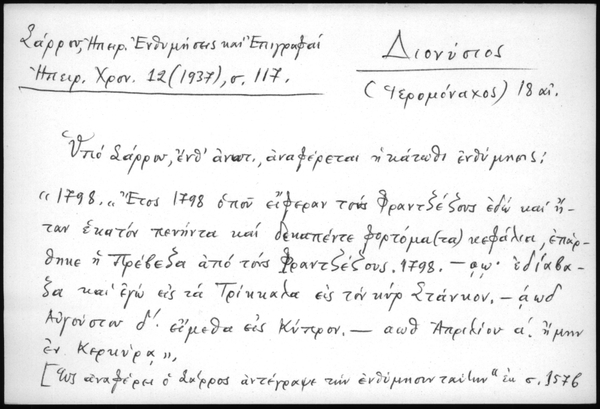 Σάρρου, Ἠπειρ. Ἐνθυμήσεις καὶ Ἐπιγραφαί
Ἠπειρ. Χρον. 12 (1937), σ. 117.
Διονύσιος
(Ἱερομόναχος) 18 αἰ.
Ὑπό Σάρρου, ἔνθ' ἀνωτ., ἀναφέρεται ἡ κάτωθι ἐνθύμησις:
"1798. "Ἔτος 1798 ὁποῦ εἴφεραν τούς Φραντζέζους ἐδώ καί ἤ-
ταν ἑκατόν πενήντα καί δεκαπέντε φορτόμα(τα) κεφάλια, ἐπάρ-
θηκε ἡ Πρέβεζα ἀπό τούς Φραντζέζους. 1798. – αω· ἐδίαβα-
ξα καί ἐγώ εἰς τά Τρίκκαλα εἰς τόν κύρ Στάνκον. – αωδ
Αὐγούστου δ΄. εἴμεθα εἰς Κύπρον. – αωθ Ἀπριλίου α΄. ἤμην
ἐν Κερκύρᾳ",
[Ὡς ἀναφέρει ὁ Σάρρος ἀντέγραψε τήν ἐνθύμησιν ταύτην" ἐκ σ. 157β